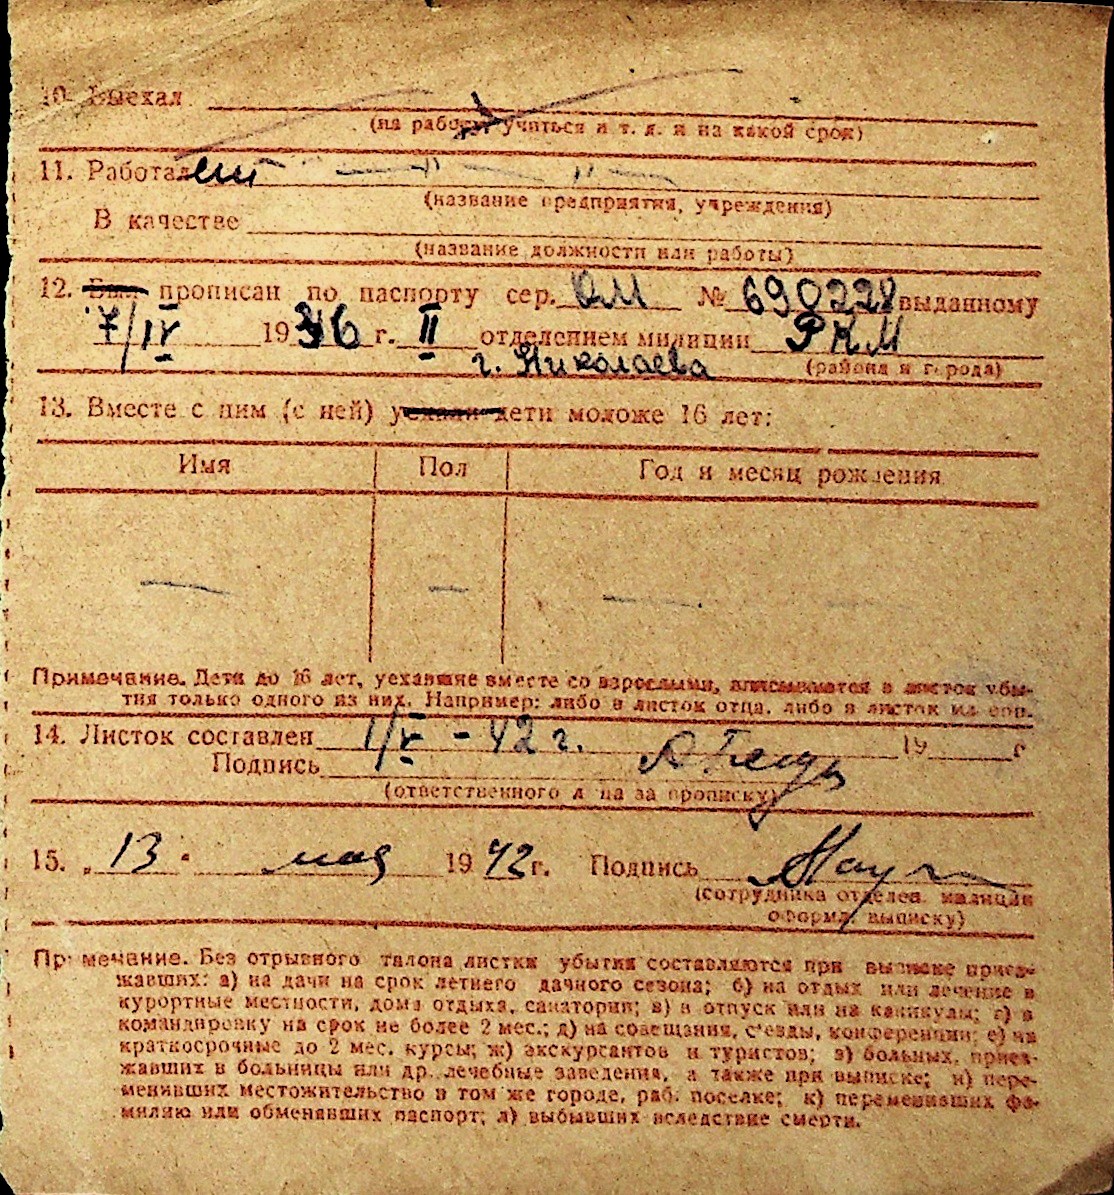 10. Выехал
(на работу, учиться и т. п. и на какой срок)
11. Работал
(название предприятия, учреждения)
В качестве
(название должности или работы)
12. Был прописан по паспорту сер. ОМ № 690228 выданному
7/IV 1936 г. II отделением милиции РКМ
г. Николаева (района и города)
13. Вместе с ним (с ней) уехали дети моложе 16 лет:
Имя Пол Год и месяц рождения
— — —
Примечание. Дети до 16 лет, уехавшие вместе со взрослыми, вписываются в листок убы-
тия только одного из них. Например: либо в листок отца, либо в листок матери.
14. Листок составлен 1/V - 42 г. 19 г
Подпись
(ответственного лица за прописку)
15. „13" мая 1942 г. Подпись
(сотрудника отделен. милиции
оформл. выписку)
Примечание. Без отрывного талона листки убытия составляются при выписке приез-
жавших: а) на дачи на срок летнего дачного сезона; б) на отдых или лечение в
курортные местности, дома отдыха, санатории; в) в отпуск или на каникулы; г) в
командировку на срок не более 2 мес.; д) на совещания, съезды, конференции; е) на
краткосрочные до 2 мес. курсы; ж) экскурсантов и туристов; з) больных, приез-
жавших в больницы или др. лечебные заведения, а также при выписке; и) пере-
менивших местожительство в том же городе, раб. поселке; к) переменивших фа-
милию или обменявших паспорт; л) выбывших вследствие смерти.